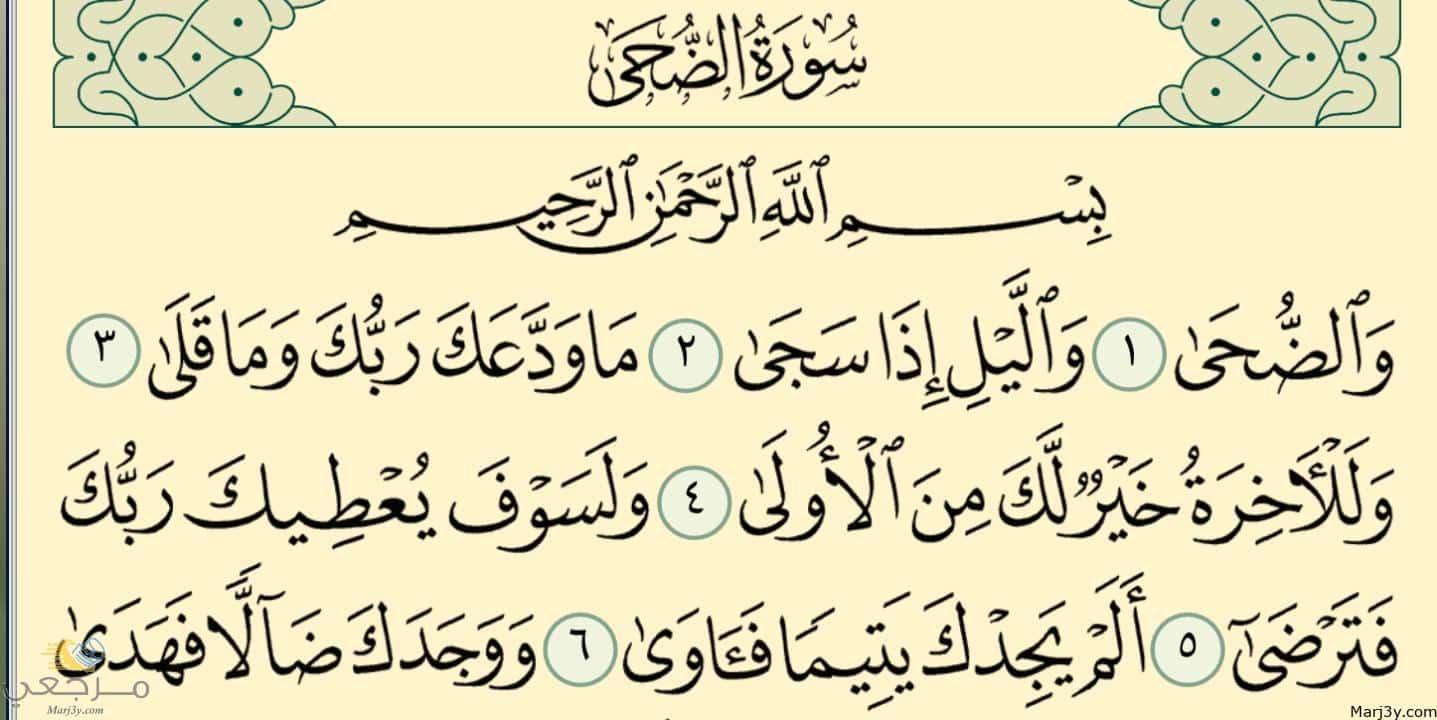 سُورَةُ الضُّحَىٰ
بِسْمِ ٱللَّهِ ٱلرَّحْمَٰنِ ٱلرَّحِيمِ
وَٱلضُّحَىٰ ١ وَٱلَّيْلِ إِذَا سَجَىٰ ٢ مَا وَدَّعَكَ رَبُّكَ وَمَا قَلَىٰ ٣
وَلَلْأٓخِرَةُ خَيْرٌ لَّكَ مِنَ ٱلْأُولَىٰ ٤ وَلَسَوْفَ يُعْطِيكَ رَبُّكَ
فَتَرْضَىٰٓ ٥ أَلَمْ يَجِدْكَ يَتِيمًا فَـَٔاوَىٰ ٦ وَوَجَدَكَ ضَآلًّا فَهَدَىٰ
مرجعي
Marj3y.com
Marj3y.com